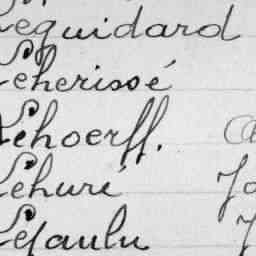 Leguidard
Leherissé
Lehoerff.
Lehuré
Lejaulu